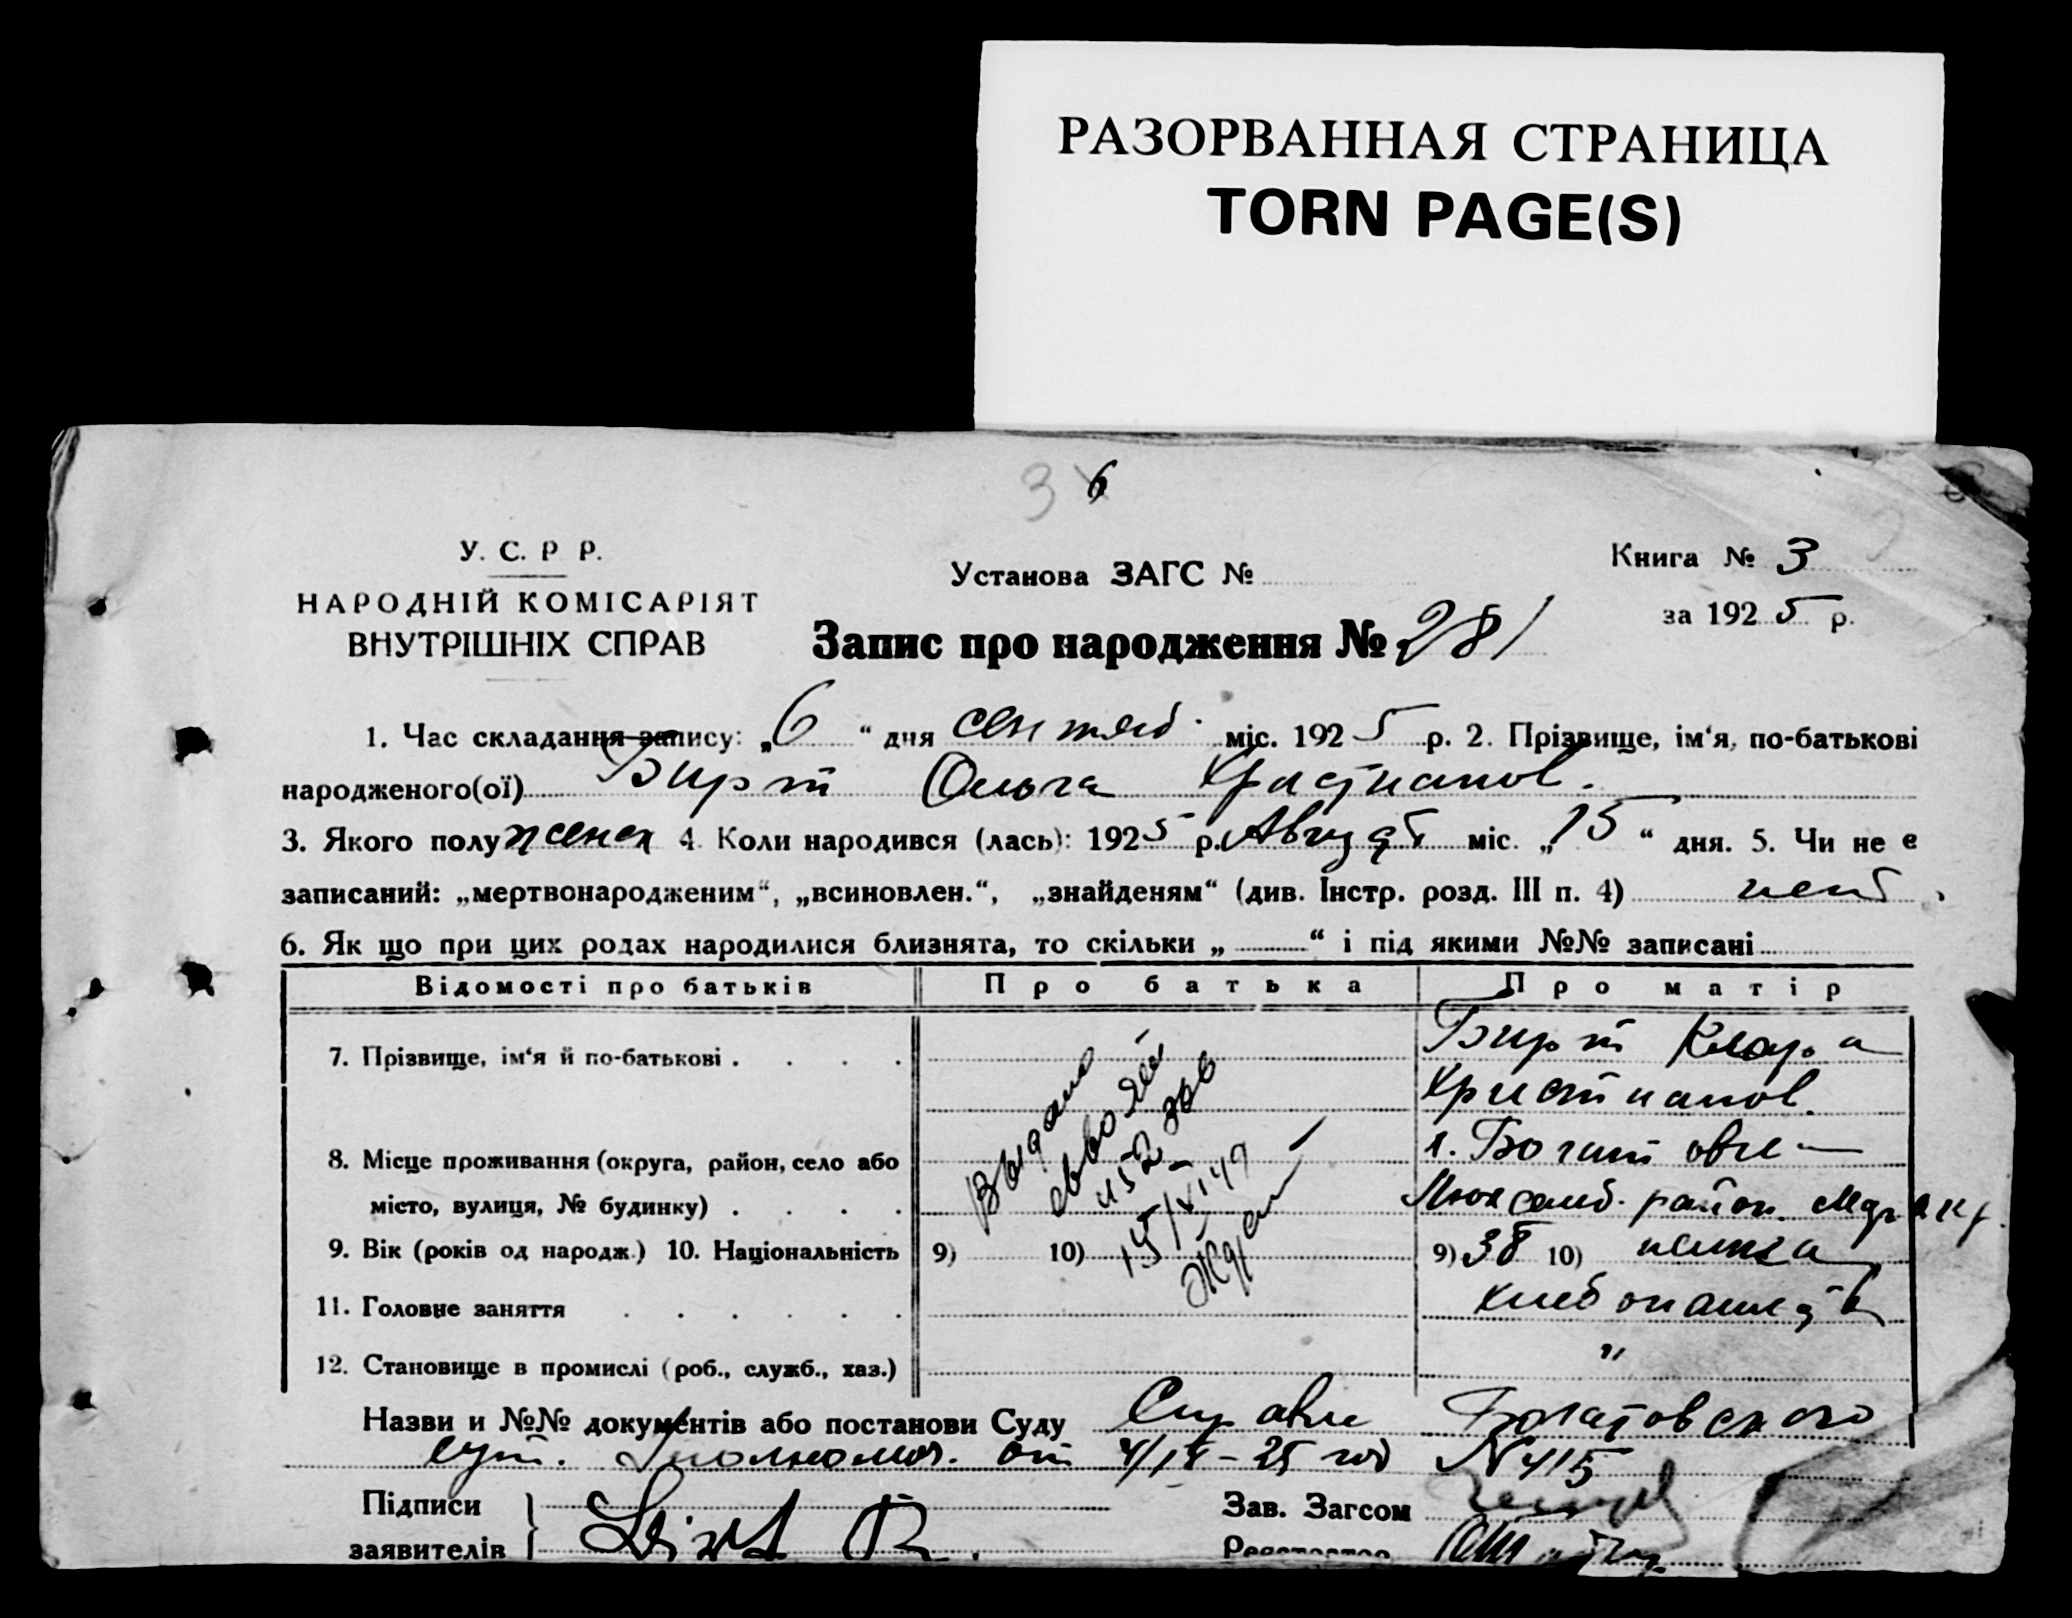 РАЗОРВАННАЯ СТРАНИЦА
TORN PAGE(S)
3 6
У. С. Р Р.
НАРОДНІЙ КОМІСАРІЯТ
ВНУТРІШНІХ СПРАВ
Установа ЗАГС №
Книга № 3
за 1925 р.
Запис про народження № 281
1. Час складання запису: „6“ дня сентяб. міс. 1925 р. 2. Прізвище, ім‘я, по-батькові
народженого(ої) Бирт Ольга Християнов.
3. Якого полу женск 4. Коли народився (лась): 1925 р. Август міс. „15“ дня. 5. Чи не є
записаний: „мертвонародженим“, „всиновлен.“, „знайденям“ (див. Інстр. розд. III п. 4) нет.
6. Як що при цих родах народилися близнята, то скільки „ “ і під якими №№ записані
Відомості про батьків Про батька Про матір
7. Прізвище, ім‘я й по-батькові . . . . Бирт Клара
Христианов.
8. Місце проживання (округа, район, село або
місто, вулиця, № будинку) . . . . район.
9. Вік (років од народж.) 10. Національність 9) 10) 9) 38 10) немка
11. Головне заняття . . . . . . хлебопашество
12. Становище в промислі (роб., служб., хаз.) "
Выдано
Назви и №№ документів або постанови Суду Справки Богатовского
от 4/IX-25 год N 415
Підписи
заявителів
Зав. Загсом